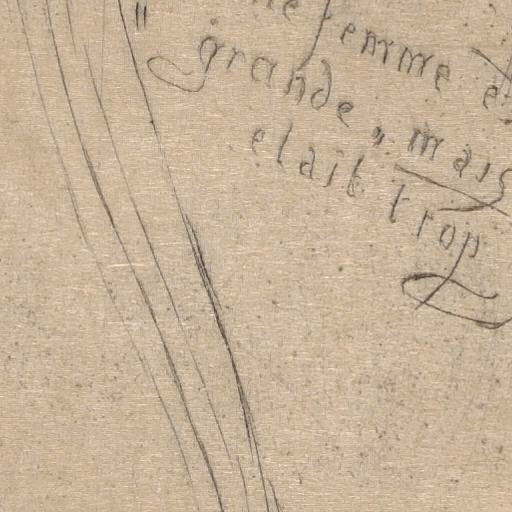 " femme e
grande " mais
elait trop